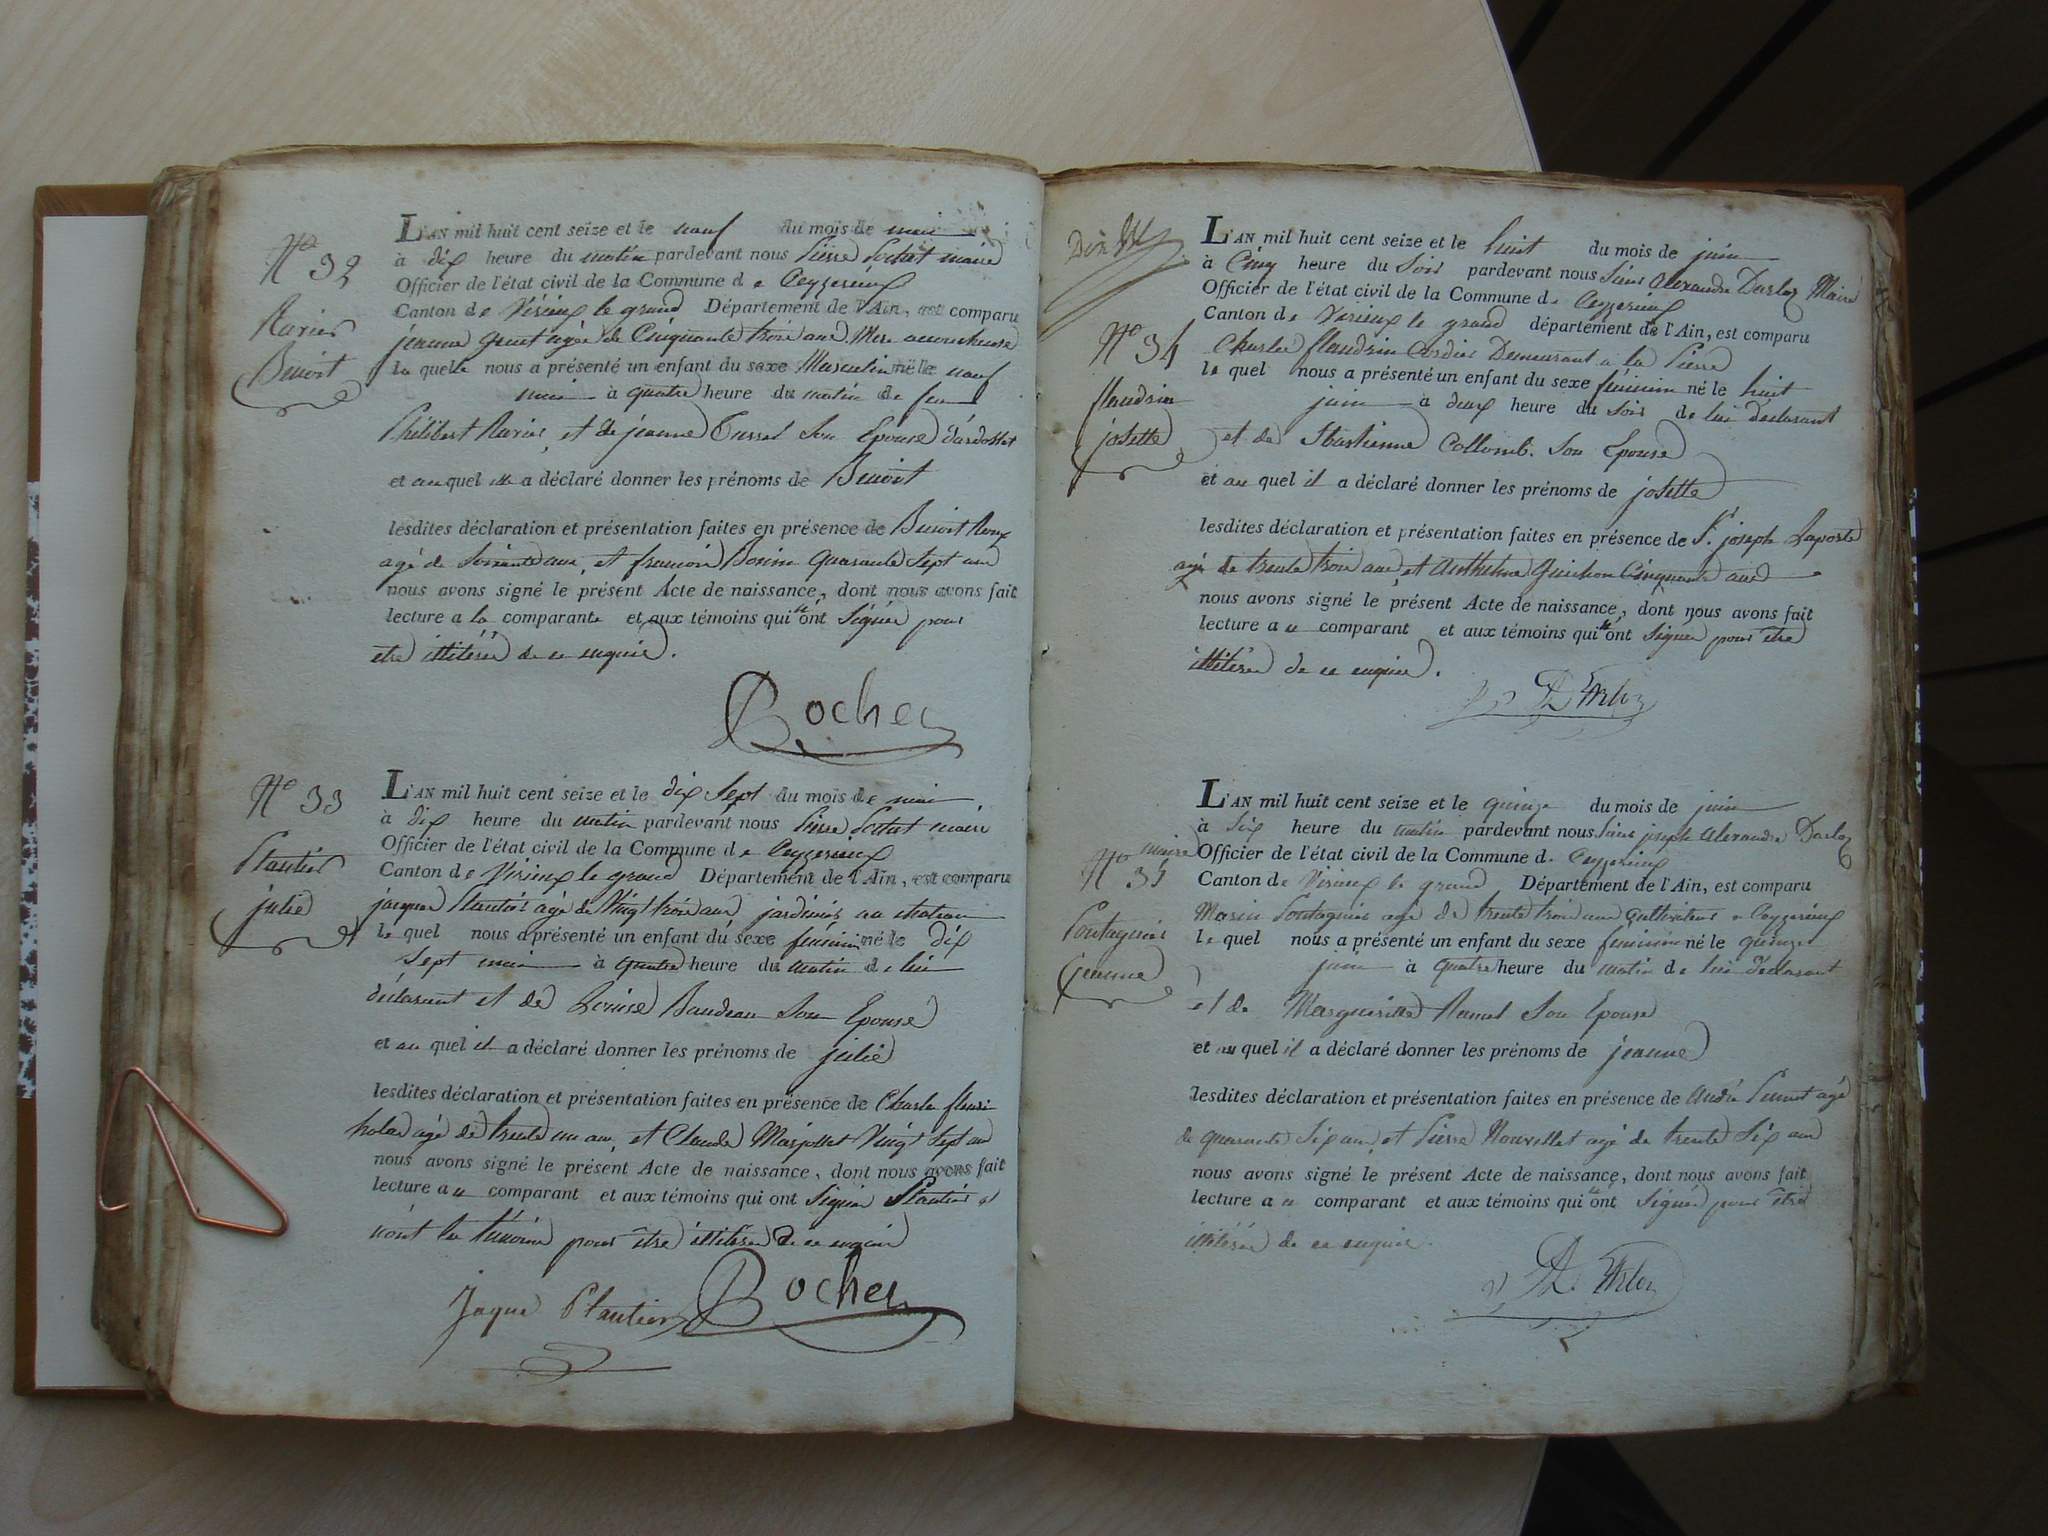 N° 32
Ravier
Benoit
L'AN mil huit cent seize et le neuf du mois de mai
à dix heure du matin pardevant nous Pierre Bochet maire
Officier de l'état civil de la Commune de Ceyzerieux
Canton de Virieux le grand Département de l'Ain, est comparu
jeanne agée de Cinquante trois ans Mere accoucheuse
la quelle nous a présenté un enfant du sexe Masculin né le neuf
mai à quatre heure du matin de feu
Philibert Ravier, et de jeanne son Epouse
et au quel elle a déclaré donner les prénoms de Benoit
lesdites déclaration et présentation faites en présence de Benoit Roux
agé de Soixante ans, et francois quarante sept ans
nous avons signé le présent Acte de naissance, dont nous avons fait
lecture a la comparante et aux témoins qui n'ont Signés pour
etre illitérés de ce enquis.
Bochet
N° 33
Plautier
julie
L'AN mil huit cent seize et le dix Sept du mois de mai
à dix heure du matin pardevant nous Pierre Bochet maire
Officier de l'état civil de la Commune de Ceyzerieux
Canton de Virieux le grand Département de l'Ain, est comparu
jacques Plautier agé de Vingt trois ans jardinier au chateau
le quel nous a présenté un enfant du sexe féminin né le dix
Sept mai à quatre heure du matin de lui
déclarant et de Louise Baudeau Son Epouse
et au quel il a déclaré donner les prénoms de julie
lesdites déclaration et présentation faites en présence de Charles fleuri
agé de trente un ans, et Claude Marjollet Vingt Sept ans
nous avons signé le présent Acte de naissance, dont nous avons fait
lecture a ce comparant et aux témoins qui ont Signé Plautier et
n'ont les témoins pour être illitérés de ce enquis
Jaque Plautier Bochet
N° 34
flaudrin
josette
L'AN mil huit cent seize et le huit du mois de juin
à Cinq heure du Soir pardevant nous Alexandre Darloz Maire
Officier de l'état civil de la Commune de Ceyzerieux
Canton de Virieux le grand département de l'Ain, est comparu
Charles flaudrin Cordier Demeurant a la Pierre
le quel nous a présenté un enfant du sexe féminin né le huit
juin à deux heure du Soir de lui déclarant
et de Sbastienne Collomb. Son Epouse
et au quel il a déclaré donner les prénoms de josette
lesdites déclaration et présentation faites en présence de Sr. joseph Laporte
agé de trente trois ans, et Anthelme Guichon Cinquante ans
nous avons signé le présent Acte de naissance, dont nous avons fait
lecture a ce comparant et aux témoins qui n'ont Signés pour être
illitérés de ce enquis.
N° 35
Pontagnier
jeanne
L'AN mil huit cent seize et le quinze du mois de juin
à Six heure du matin pardevant nous joseph Alexandre Darloz
maire Officier de l'état civil de la Commune de Ceyzerieux
Canton de Virieux le grand Département de l'Ain, est comparu
Marin Pontagnier agé de trente trois ans Cultivateur a Ceyzerieux
le quel nous a présenté un enfant du sexe féminin né le quinze
juin à quatre heure du matin de lui déclarant
et de Margueritte Ramel Son Epouse
et au quel il a déclaré donner les prénoms de jeanne
lesdites déclaration et présentation faites en présence de André agé
de quarante Six ans, et Pierre Nouvellet agé de trente Six ans
nous avons signé le présent Acte de naissance, dont nous avons fait
lecture a ce comparant et aux témoins qui n'ont Signé pour être
illitérés de ce enquis.